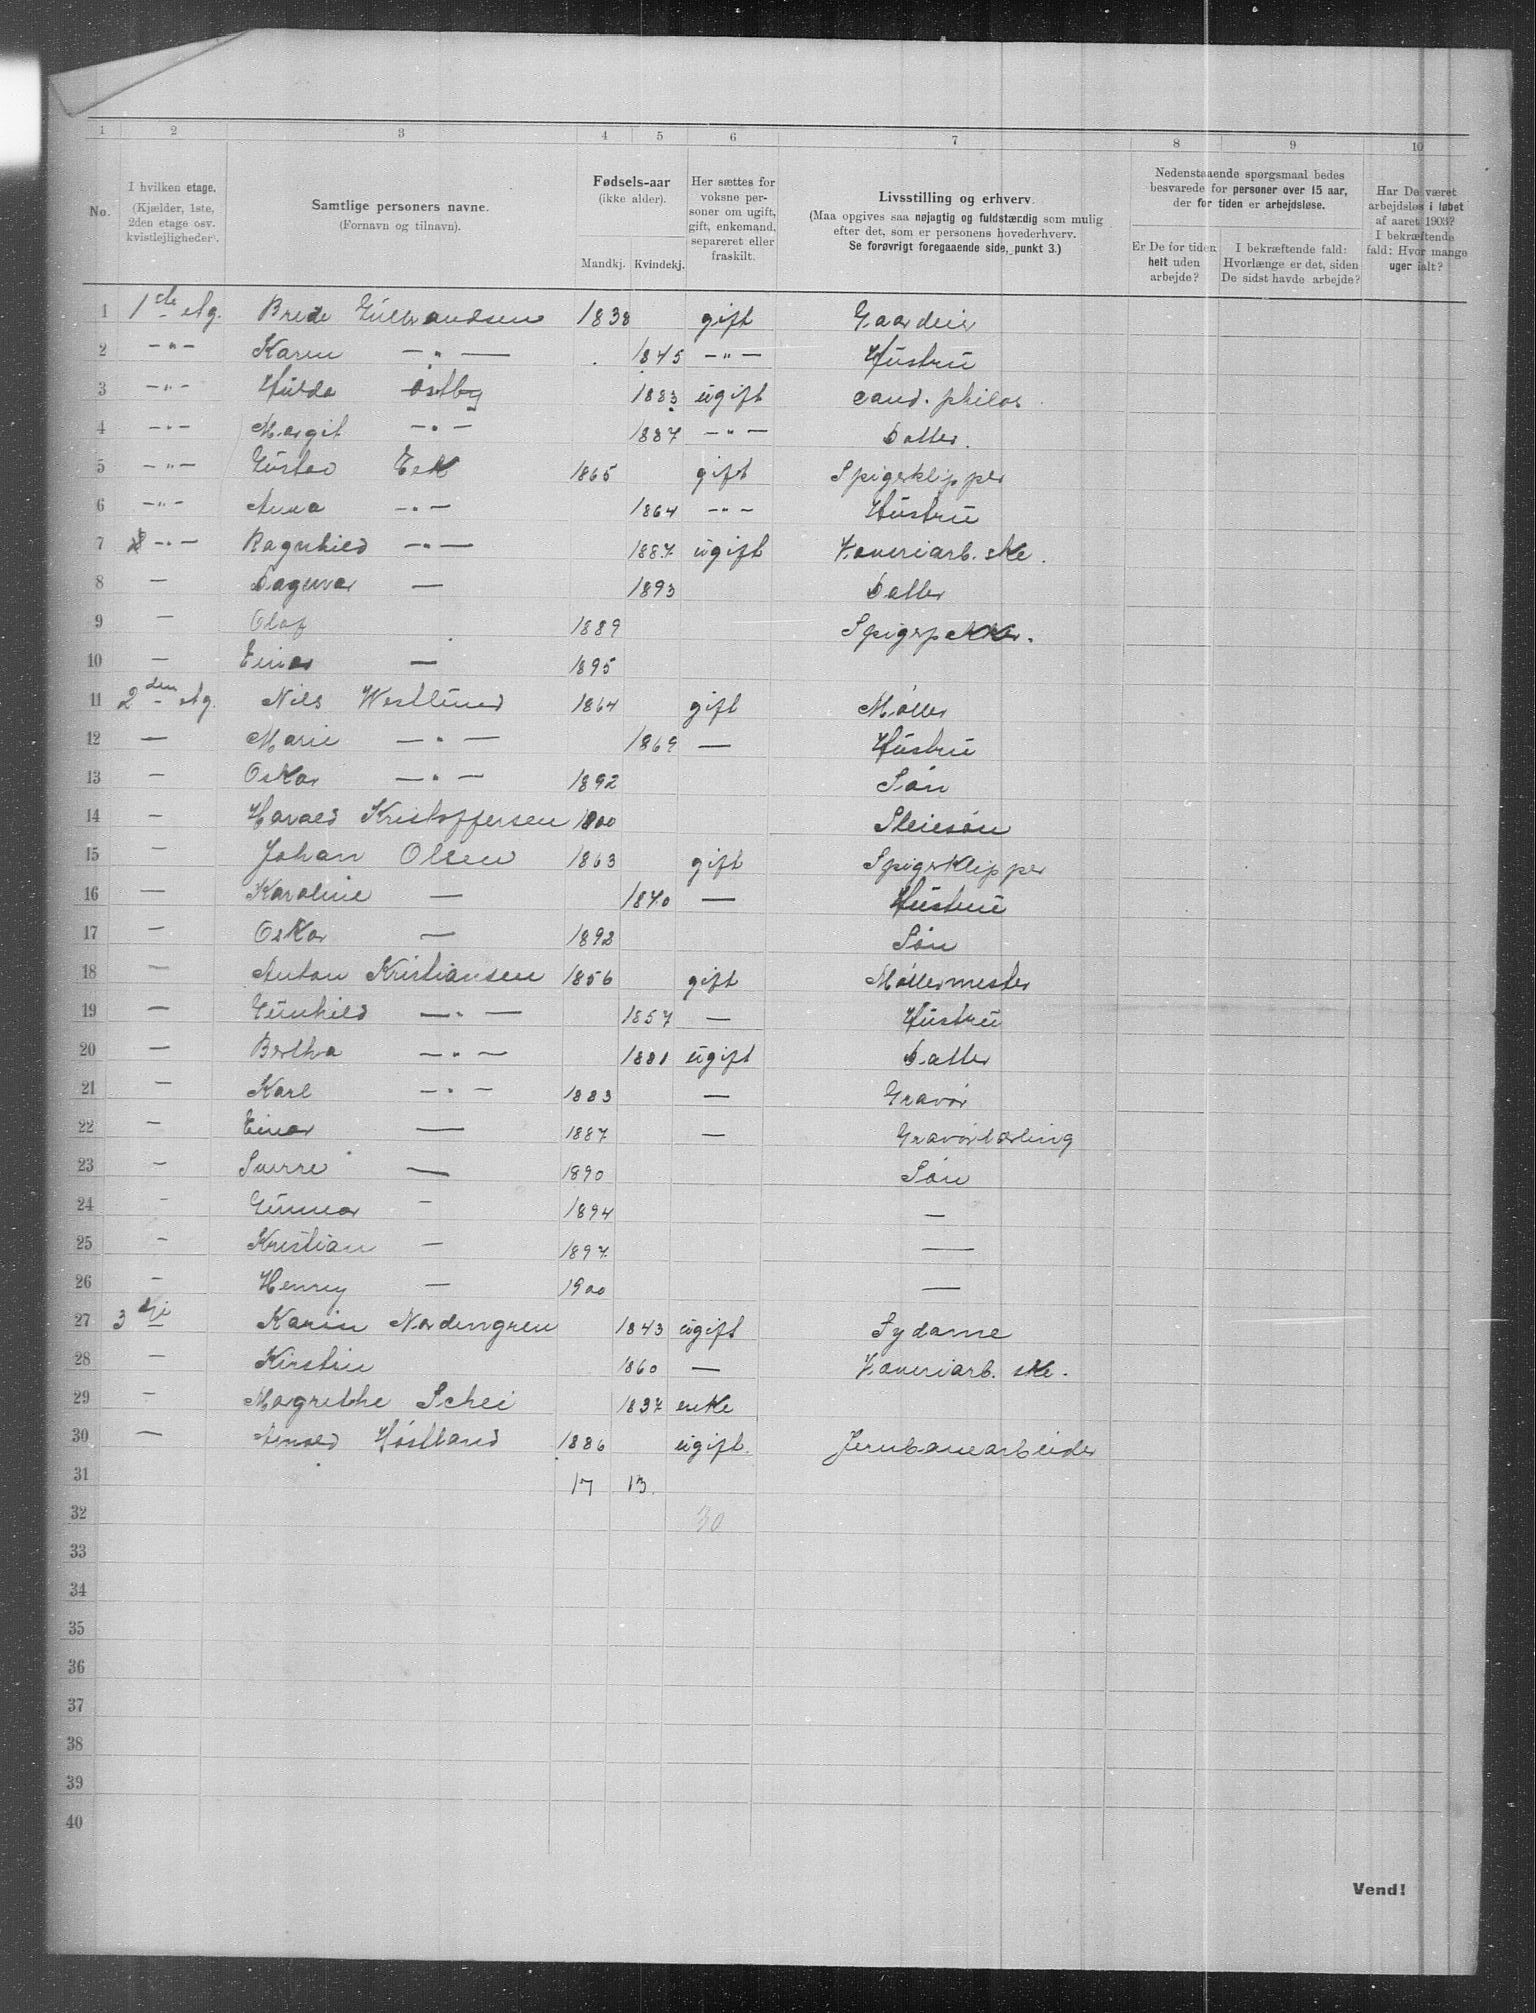 1 2 3 4 5 6 7 8 9 10
No.
I hvilken etage.
(Kjælder, 1ste, 2den etage osv. kvistlejligheder).
Samtlige personers navne.
(Fornavn og tilnavn).
Fødsels-aar
(ikke alder).
Mandkj. Kvindekj.
Her sættes for voksne personer om ugift, gift, enkemand, separeret eller fraskilt.
Livsstilling og erhverv.
(Maa opgives saa nøjagtig og fuldstændig som mulig efter det, som er personens hovederhverv.
Se forøvrigt foregaaende side, punkt 3.)
Nedenstaaende spørgsmaal bedes besvarede for personer over 15 aar, der for tiden er arbejdsløse.
Er De for tiden helt uden arbejde?
I bekræftende fald: Hvorlænge er det, siden De sidst havde arbejde?
Har De været arbejdsløs i løbet af aaret 1903? I bekræftende fald: Hvor mange uger ialt?
1 1ste Etg. Brede Gulbrandsen 1838 gift Gaardeier
2 —"— Karen —"— 1845 —"— Hustru
3 —"— Hulda Østby 1883 ugift cand. philos
4 —"— Margit —"— 1887 —"— Datter.
5 —"— Gustav Eek 1865 gift Spigerklipper
6 —"— Anna —"— 1864 —"— Hustru
7 —"— Ragnhild —"— 1887 ugift Væveriarb.ske.
8 — Dagmar — 1893 Datter
9 — Olaf 1889 Spigerpakker.
10 — Einar — 1895
11 2den Etg. Nils Westlund 1864 gift Møller
12 — Marie —"— 1869 — Hustru
13 — Oskar —"— 1892 Søn
14 — Harald Kristoffersen 1900 Pleiesøn
15 — Johan Olsen 1863 gift Spigerklipper
16 — Karoline — 1840 — Hustru
17 — Oskar — 1892 Søn
18 — Anton Kristiansen 1856 gift Møllermester
19 — Gunhild —"— 1857 — Hustru
20 — Bertha —"— 1881 ugift Datter
21 — Karl —"— 1883 — Gravør
22 — Einar — 1887 — Gravørlærling
23 — Sverre — 1890 Søn
24 — Gunnar — 1894 —
25 — Kristian — 1897 —
26 — Henry — 1900 —
27 3dje Karin Nordengren 1843 ugift Sydame
28 — Kirstin 1860 — Væveriarb.ske.
29 — Margrethe Schei 1837 enke
30 — Arnold Høstland 1886 ugift. Jernbanearbeider
31 17 13.
32 30
33
34
35
36
37
38
39
40
Vend!